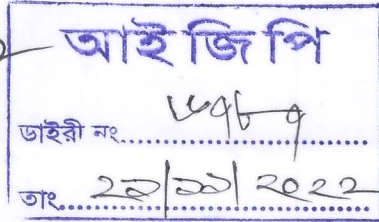 আই জি পি
ডাইরী নং.......... ৮৭৮৭
তাং.......... ২২|১১| ২০২২